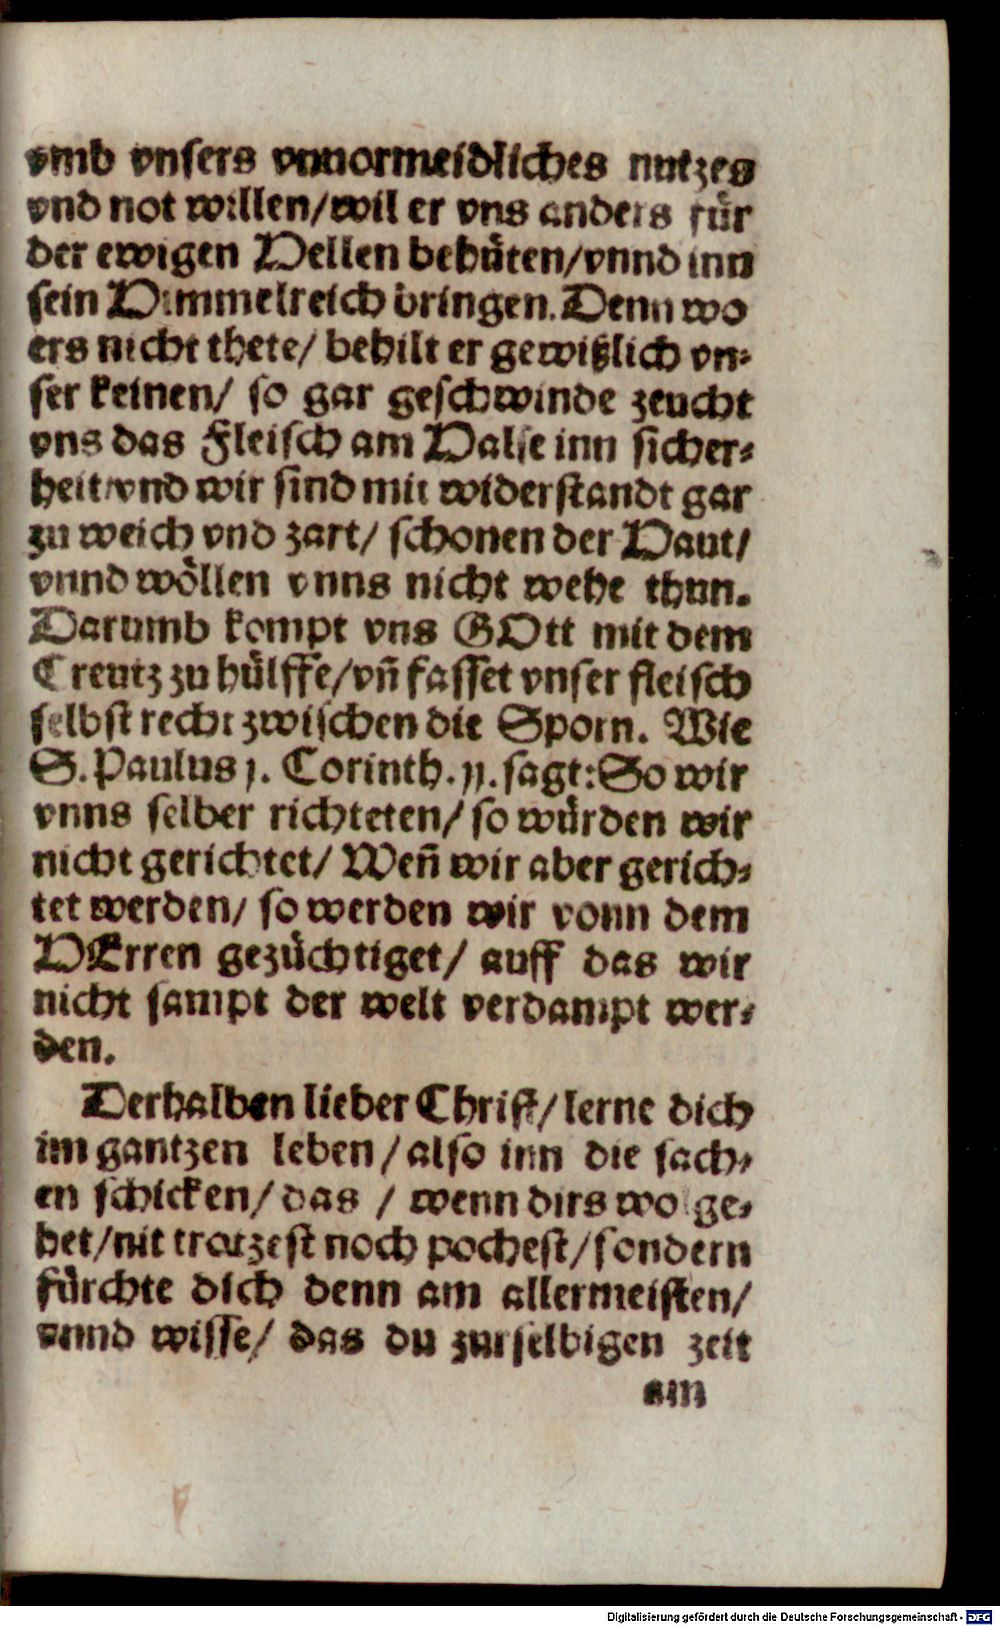 vmb vnsers vnuormeidliches nutzes
vnd not willen/wil er vns anders für
der ewigen Hellen behüten/vnnd inn
sein Himmelreich bringen. Denn wo
ers nicht thete/ behilt er gewißlich vn-
ser keinen/ so gar geschwinde zeucht
vns das Fleisch am Halse inn sicher-
heit/vnd wir sind mit widerstandt gar
zu weich vnd zart/ schonen der Haut/
vnnd wöllen vnns nicht wehe thun.
Darumb kompt vns GOtt mit dem
Creutz zu hülffe/vñ fasset vnser fleisch
selbst recht zwischen die Sporn. Wie
S. Paulus j. Corinth. jj. sagt: So wir
vnns selber richteten/ so würden wir
nicht gerichtet/ Weñ wir aber gerich-
tet werden/ so werden wir vonn dem
HErren gezüchtiget/ auff das wir
nicht sampt der welt verdampt wer-
den.
Derhalben lieber Christ/ lerne dich
im gantzen leben/also inn die sach-
en schicken/ das / wenn dirs wol ge-
het/nit trotzest noch pochest/sondern
fürchte dich denn am allermeisten/
vnnd wisse/ das du zur selbigen zeit
am
Digitalisierung gefördert durch die Deutsche Forschungsgemeinschaft - DFG